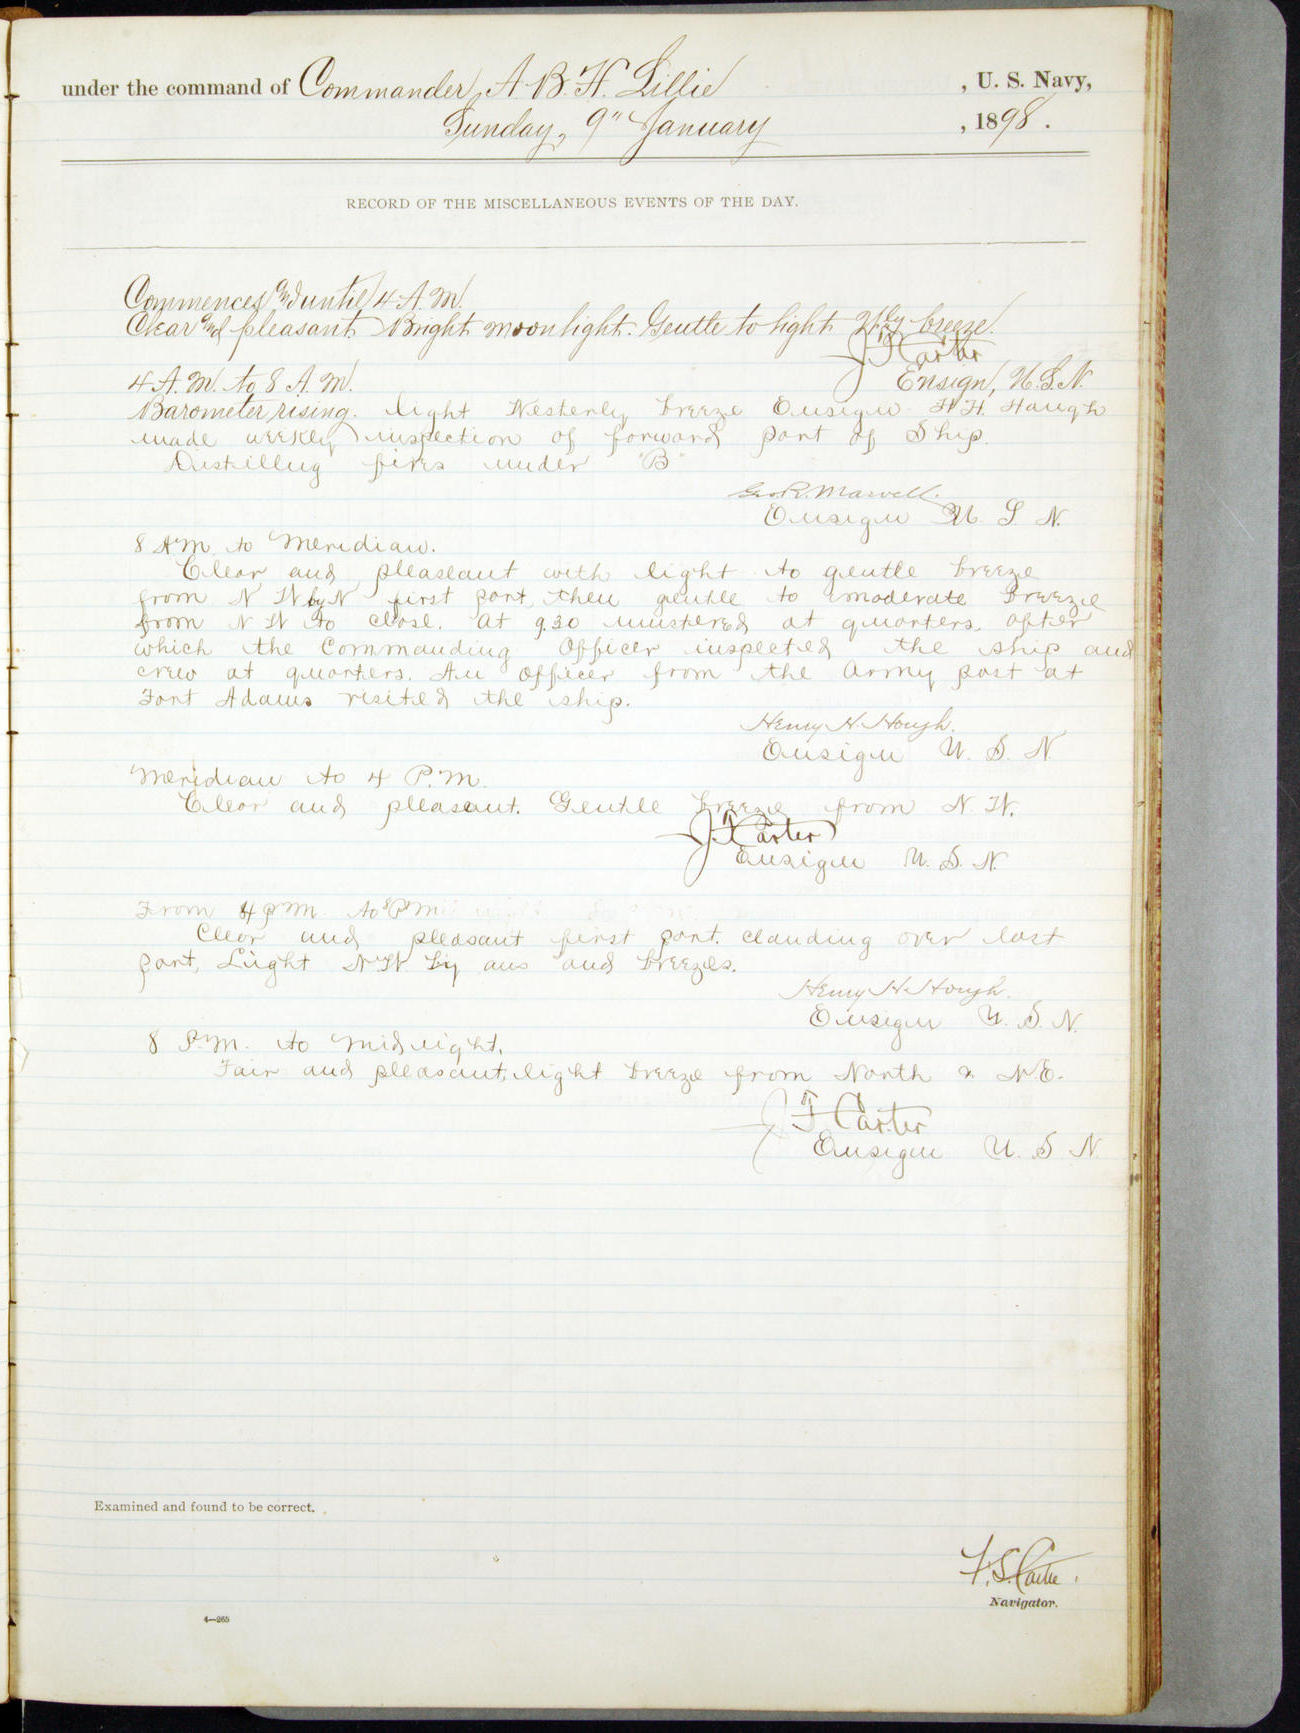 under the command of Commander, A. B. H. Lillie, U. S. Navy,
Sunday, 9" January, 1898.
RECORD OF THE MISCELLANEOUS EVENTS OF THE DAY.
Commences and until 4 A.M.
Clear and pleasant. Bright moonlight. Gentle to light breeze.
J F Carter
Ensign, U.S.N.
4 A.M. to 8 A.M.
Barometer rising. light Westerly breeze Ensign H. H. Haugh
made weekly inspection of forward part of Ship.
Distilling fires under "B"
Geo. R. Marvell.
Ensign U. S. N.
8 AM. to Meridian.
Clear and pleaseant with light to gentle breeze
from N W by N first part, then gentle to moderate breeze
from N W to close. At 9.30 mustered at quarters. after
which the Commanding Officer inspected the ship and
crew at quarters. An officer from the Army post at
Fort Adams visited the ship.
Henry H. Hough.
Ensign U. S. N.
Meridian to 4 P.M.
Clear and pleasant. Gentle breeze from N. W.
J F Carter
Ensign U. S. N.
From 4 PM. to 8 PM
Clear and pleasant first part. clouding over last
part, Light N W by airs and breezes.
Henry H. Hough.
Ensign U. S. N.
8 P.M. to Midnight.
Fair and pleasant, light breeze from North & N.E.
J F Carter
Ensign U. S. N.
Examined and found to be correct.
Navigator.
4—265